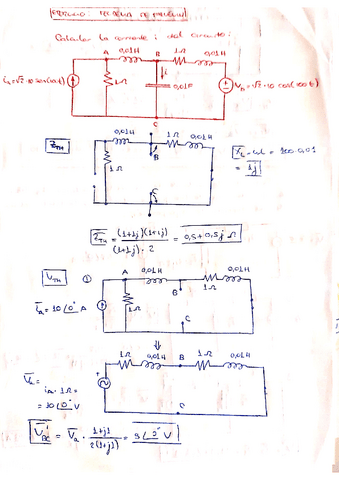 Calcular la corriente i del circuito:
A 0,01H B 1Ω 0,01H
i_a=√2·10 cos(100t) 1Ω i 0,01F V_a=√2·10 cos(100t)
C
Z_TH
0,01H 1Ω 0,01H
B
1Ω
C
X_L=ωL = 100·0,01
= 1j
Z_TH = (1+1j)(1+1j) / (1+1j)·2 = 0,5+0,5j Ω
V_TH ①
A 0,01H 0,01H
B 1Ω
I_a = 10∠0° A
1Ω C
⇓
1Ω 0,01H B 1Ω 0,01H
V_a =
i_a·1Ω =
= 10∠0° V
C
V_BC = V_a · 1+j1 / 2(1+j1) =